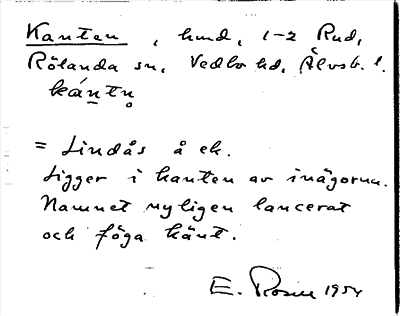 Kanten, hmd, 1-2 Rud,
Rölanda sn, Vedbo hd, Älvsb. l.
kántn̥
= Lindås å ek.
Ligger i kanten av inägorna.
Namnet nyligen lancerat
och föga känt.
E. Rosell 1954